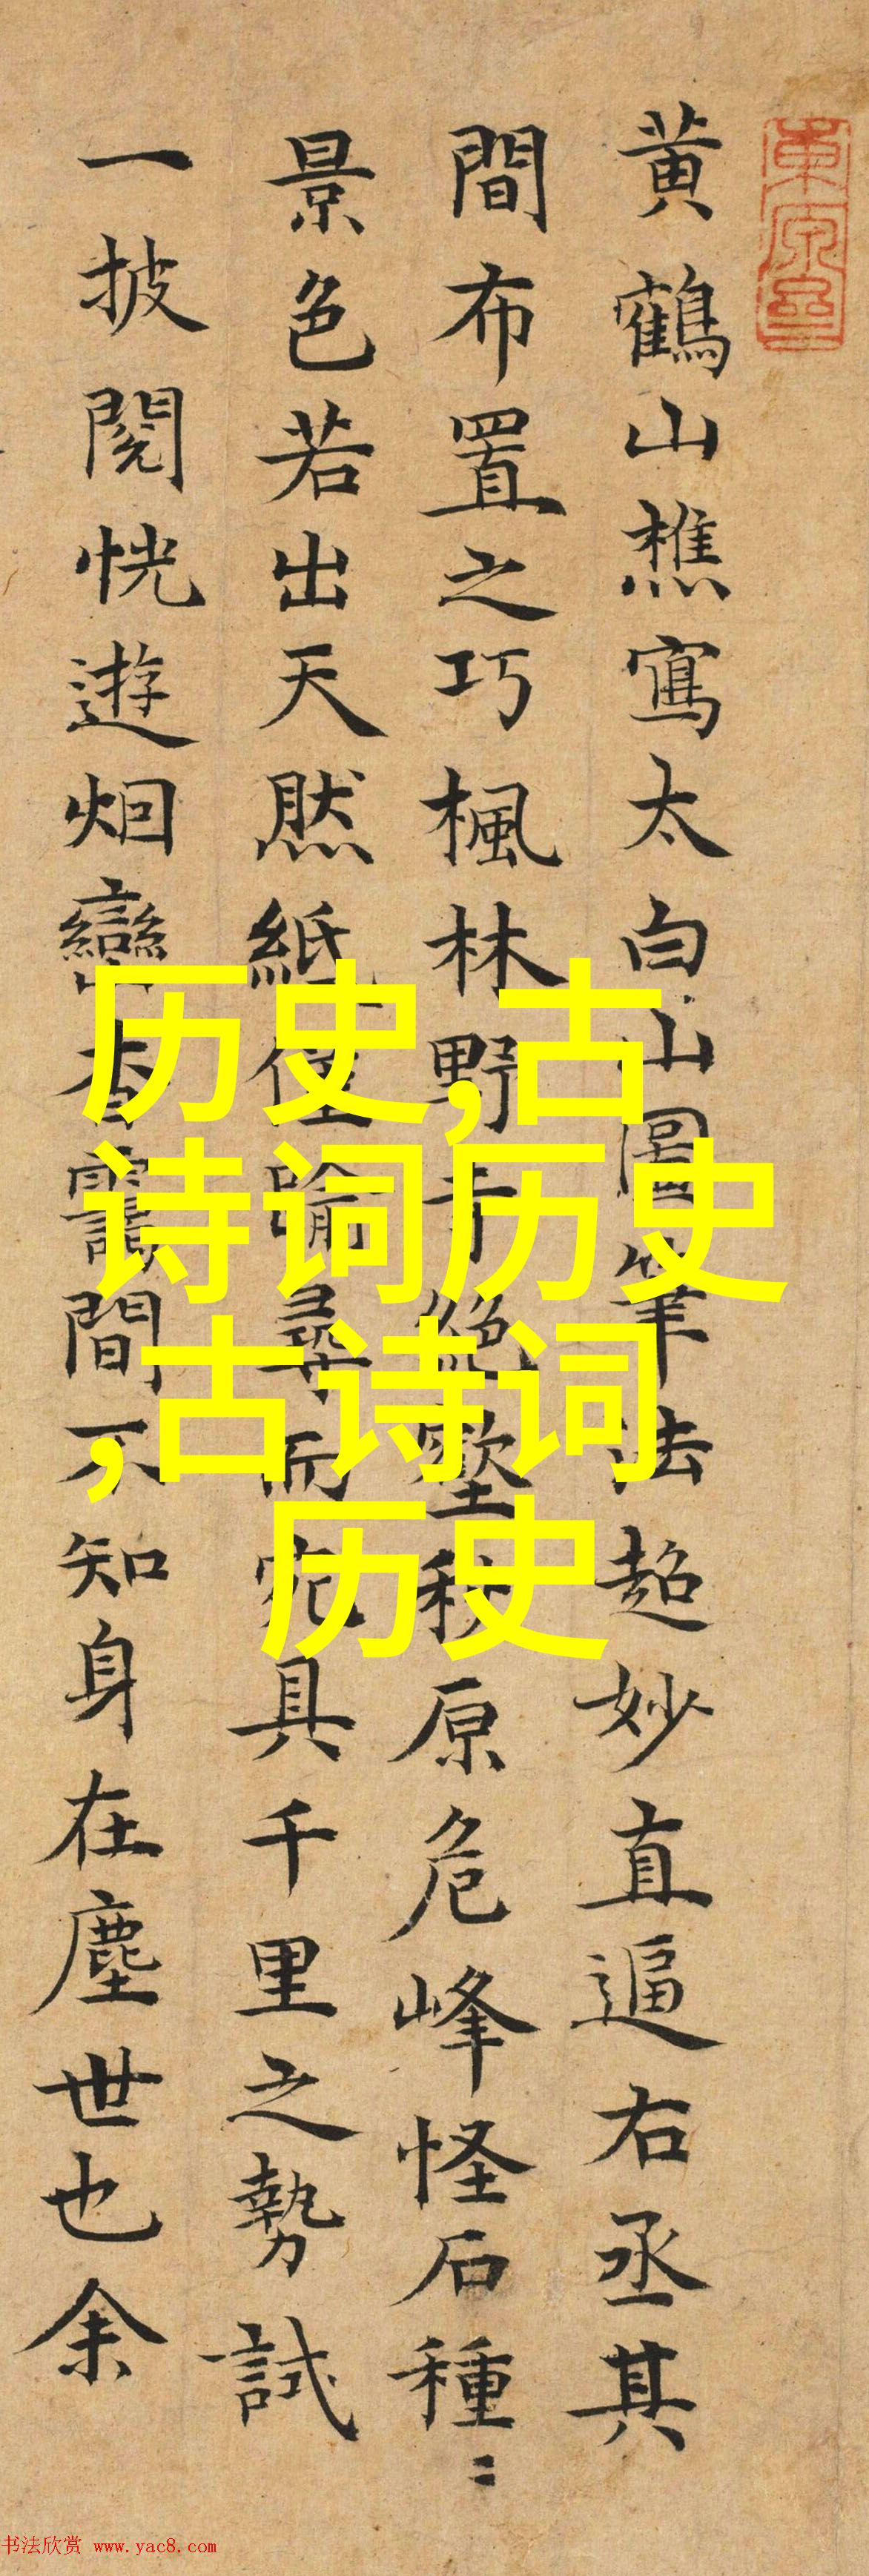 黄鶴山樵寫太白山圖筆法超妙直逼右丞其
間布置之巧楓林野寺絶壑秋原危峰怪石種〻
景色若出天然紙僅喻尋而宛具千里之勢試
一披閱恍遊烟巒杳靄間不知身在塵世也余
历史,古
诗词历史
,古诗词
历史
书法欣赏 www.yac8.com